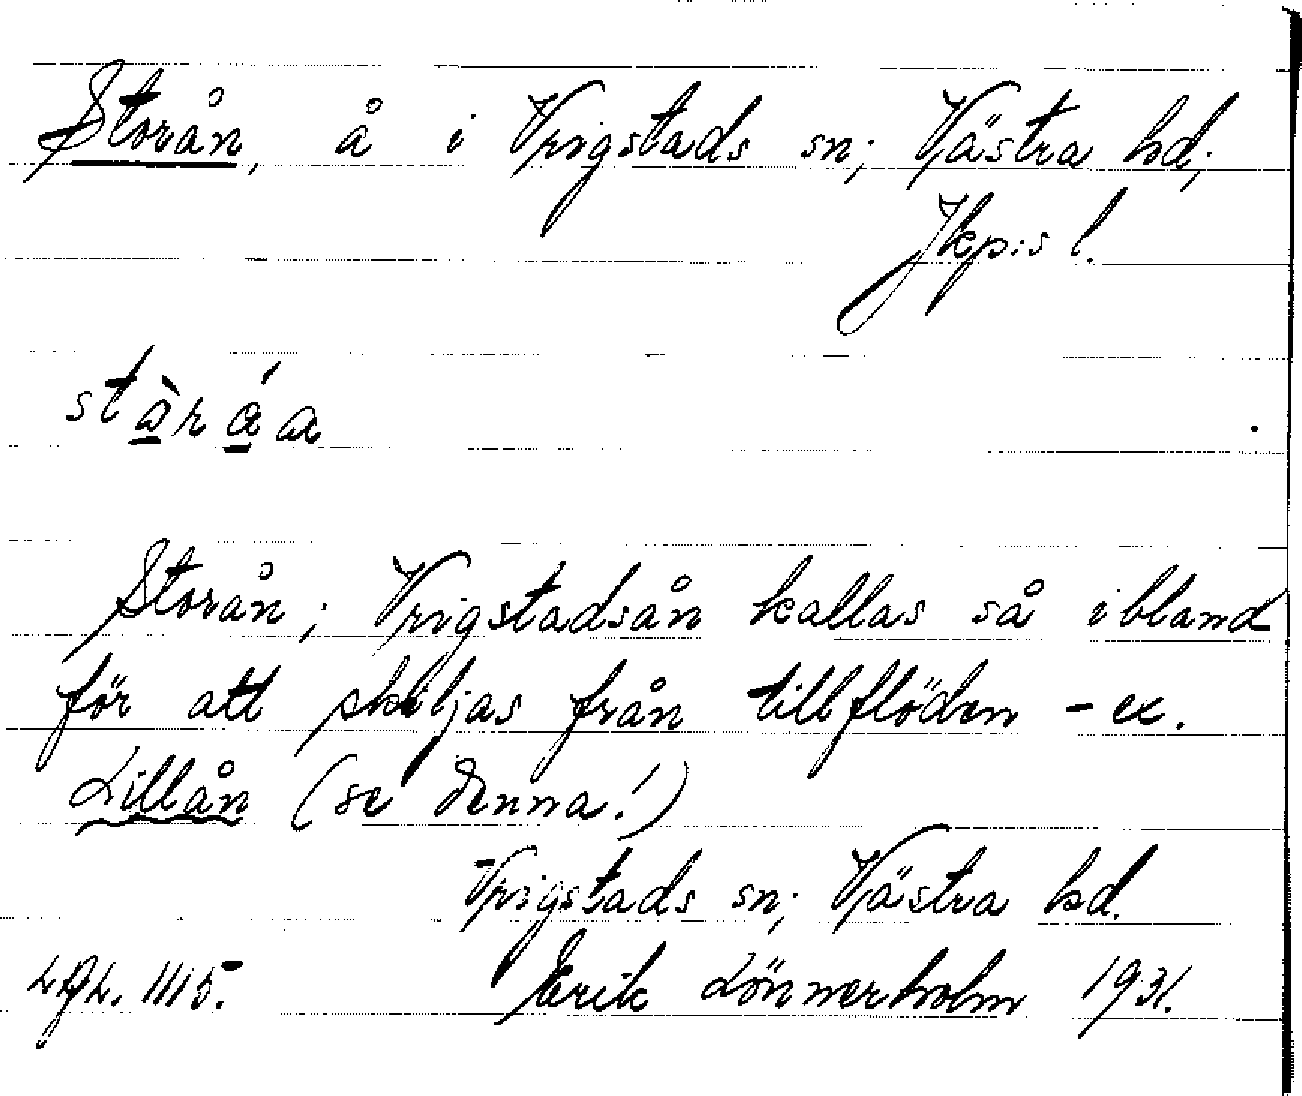 Storån, å i Vrigstads sn; Västra hd;
Jkp:s l.
Storån; Vrigstadsån kallas så ibland
för att skiljas från tillflöden - ex.
Lillån (se denna!)
Vrigstads sn; Västra hd.
1115. Erik Lönnerholm 1931.